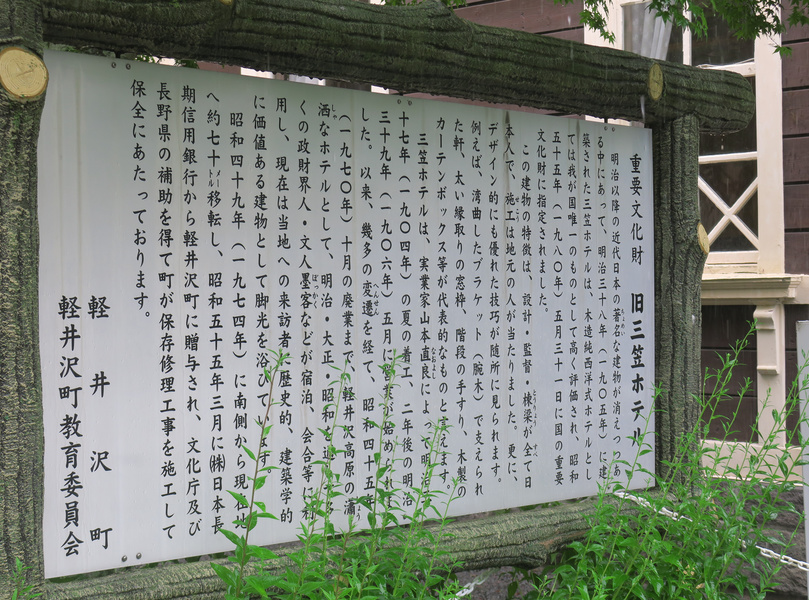 重要文化財　旧三笠ホテル
明治以降の近代日本の著名な建物が消えつつあ
る中にあって、明治三十八年（一九〇五年）に建
築された三笠ホテルは、木造純西洋式ホテルとし
ては我が国唯一のものとして高く評価され、昭和
五十五年（一九八〇年）五月三十一日に国の重要
文化財に指定されました。
この建物の特徴は、設計・監督・棟梁が全て日
本人で、施工は地元の人が当たりました。更に、
デザイン的にも優れた技巧が随所に見られます。
例えば、湾曲したブラケット（腕木）で支えられ
た軒、太い縁取りの窓枠、階段の手すり、木製の
カーテンボックス等が代表的なものと言えます。
三笠ホテルは、実業家山本直良によって明治三
十七年（一九〇四年）の夏の着工、二年後の明治
三十九年（一九〇六年）五月に営業が始められま
した。以来、幾多の変遷を経て、昭和四十五年
（一九七〇年）十月の廃業まで、軽井沢高原の瀟
洒なホテルとして、明治・大正・昭和を通じ多
くの政財界人・文人墨客などが宿泊、会合等に利
用し、現在は当地への来訪者に歴史的、建築学的
に価値ある建物として脚光を浴びています。
昭和四十九年（一九七四年）に南側から現在地
へ約七十メートル移転し、昭和五十五年三月に㈱日本長
期信用銀行から軽井沢町に贈与され、文化庁及び
長野県の補助を得て町が保存修理工事を施工して
保全にあたっております。
軽井沢町
軽井沢町教育委員会